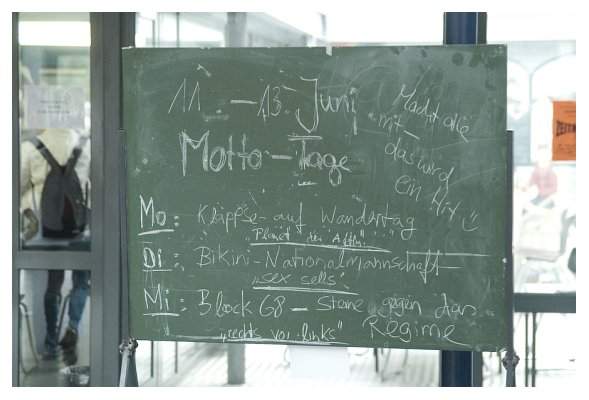 11. – 13. Juni
Macht alle
mit –
das wird
ein Hit
Motto – Tage
Mo: Kläpp'se auf Wandertag
"Planet der Affen"
Di: Bikini-Nationalmannschaft
"sex sells"
Mi: Block 68 – Steine gegen das
Regime
"rechts vor links"
ZEIT